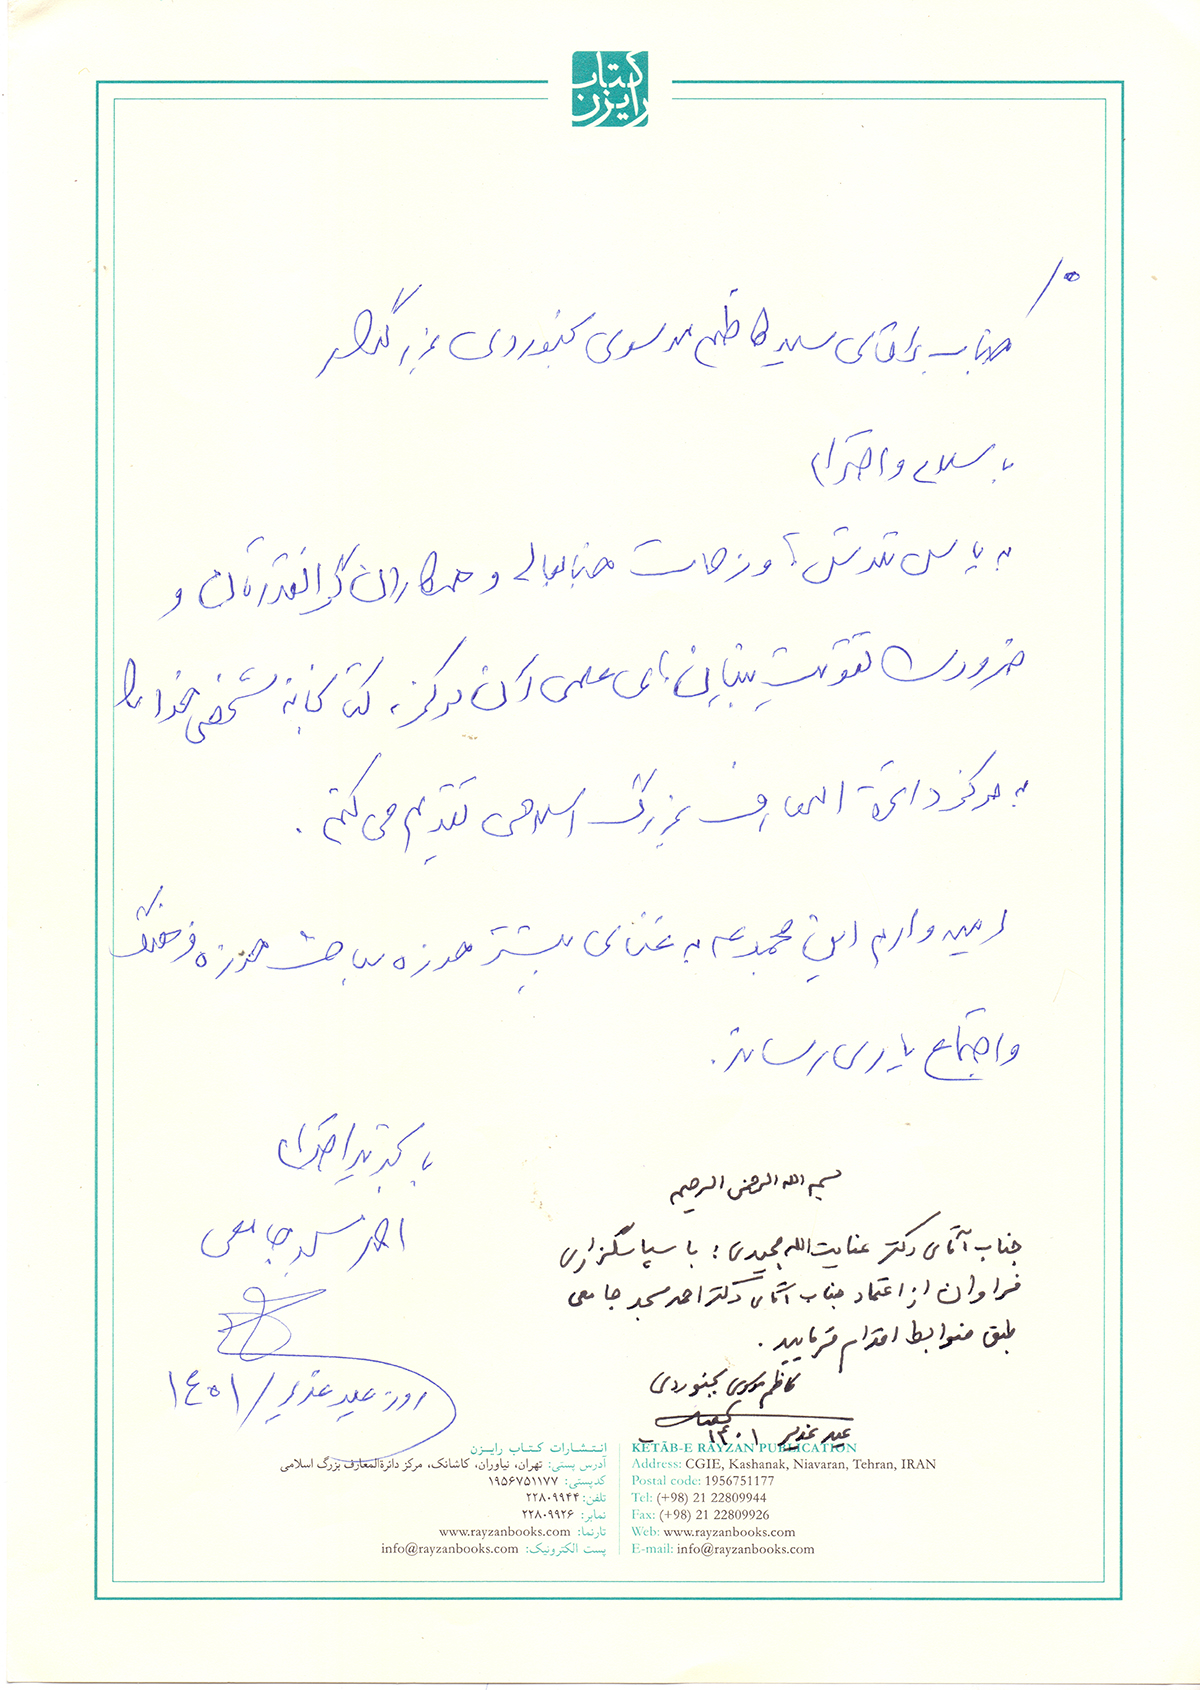 کتاب
رایزن
جناب آقای سید کاظم موسوی بجنوردی بزرگوار
با سلام و احترام
به پاس تلاش‌ها و زحمات جنابعالی و همکاران گرانقدرتان و
ضرورت تقویت بنیان‌های علمی آن مرکز، کتابخانه شخصی خود را
به مرکز دائرة المعارف بزرگ اسلامی تقدیم می‌کنم.
امیدوارم این مجموعه به غنای بیشتر حوزه مباحث حوزه فرهنگ
و اجتماع یاری رساند.
با تجدید احترام
احمد مسجدجامعی
روز عید غدیر/ ۱۴۰۱
بسم الله الرحمن الرحیم
جناب آقای دکتر عنایت‌الله مجیدی؛ با سپاسگزاری
فراوان از اعتماد جناب آقای دکتر احمد مسجد جامعی
طبق ضوابط اقدام فرمایید.
کاظم موسوی بجنوردی
عید غدیر ۱۴۰۱
انتشارات کتاب رایزن
آدرس پستی: تهران، نیاوران، کاشانک، مرکز دائرةالمعارف بزرگ اسلامی
کدپستی: ۱۹۵۶۷۵۱۱۷۷
تلفن: ۲۲۸۰۹۹۴۴
نمابر: ۲۲۸۰۹۹۲۶
تارنما: www.rayzanbooks.com
پست الکترونیک: info@rayzanbooks.com
KETĀB-E RĀYZAN PUBLICATION
Address: CGIE, Kashanak, Niavaran, Tehran, IRAN
Postal code: 1956751177
Tel: (+98) 21 22809944
Fax: (+98) 21 22809926
Web: www.rayzanbooks.com
E-mail: info@rayzanbooks.com